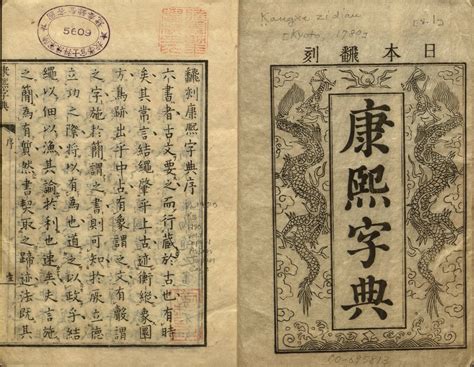 日本翻刻
康熙字典
Kangxi zidian
翻刻康熙字典序
六書者古文要之而行藏於古也有時
矣其常言結繩肇乎上古迹衡縱象圖
方焉跡出乎中古有象謂之文有謂
之字施於簡謂之書則可知於厥立德
立功之際將以有為也道之以政乎結
繩以佃以漁其諭於利也速矣言施
之簡為有然書契取之歸迹法既其
康熙字典
序
5609